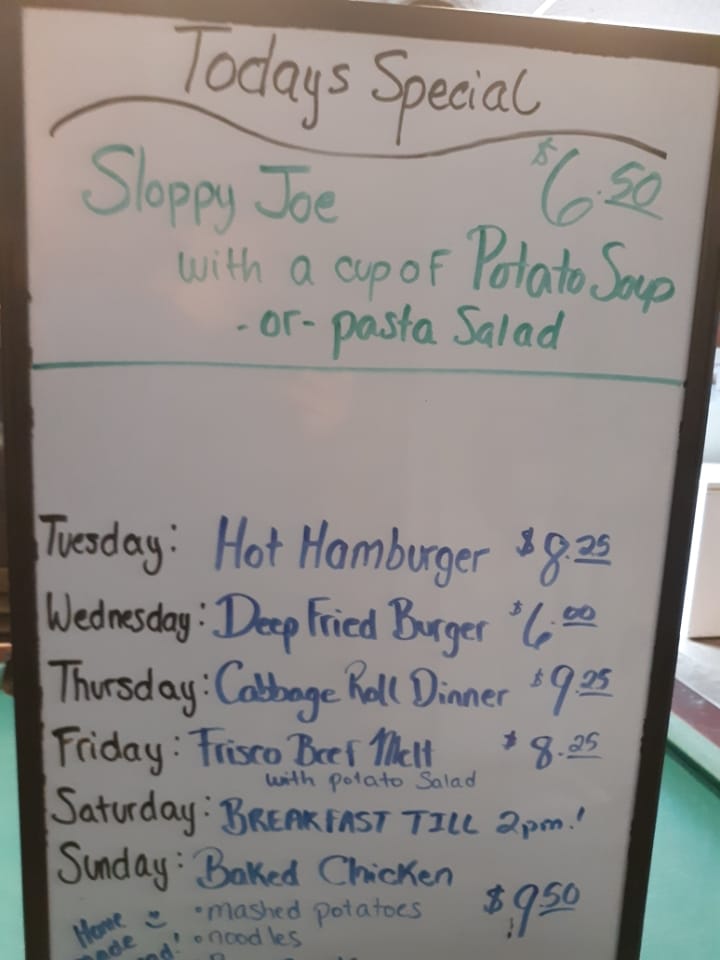 Todays Special
Sloppy Joe $6.50
with a cup of Potato Soup
-or- pasta Salad
Tuesday: Hot Hamburger $8.25
Wednesday: Deep Fried Burger $6.00
Thursday: Cabbage Roll Dinner $9.25
Friday: Frisco Beef Melt $8.25
with potato Salad
Saturday: BREAKFAST TILL 2pm!
Sunday: Baked Chicken $9.50
•mashed potatoes
•noodles
Home
made